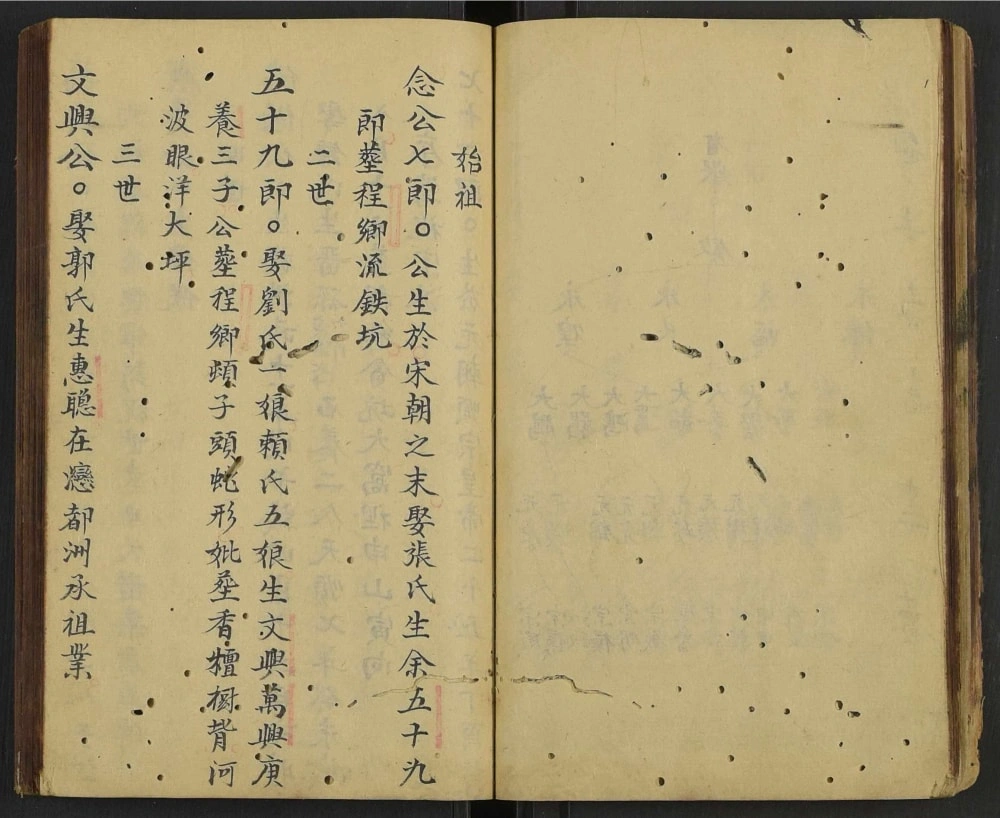 始祖
念公七郎。公生於宋朝之末娶張氏生余五十九
郎塟程鄉流鉄坑
二世
五十九郎。娶劉氏一娘賴氏五娘生文興萬興庚
養三子公塟程鄉頻子頭虵形妣塟香櫃樹背河
波眼洋大坪
三世
文興公。娶郭氏生惠聰在都洲承祖業